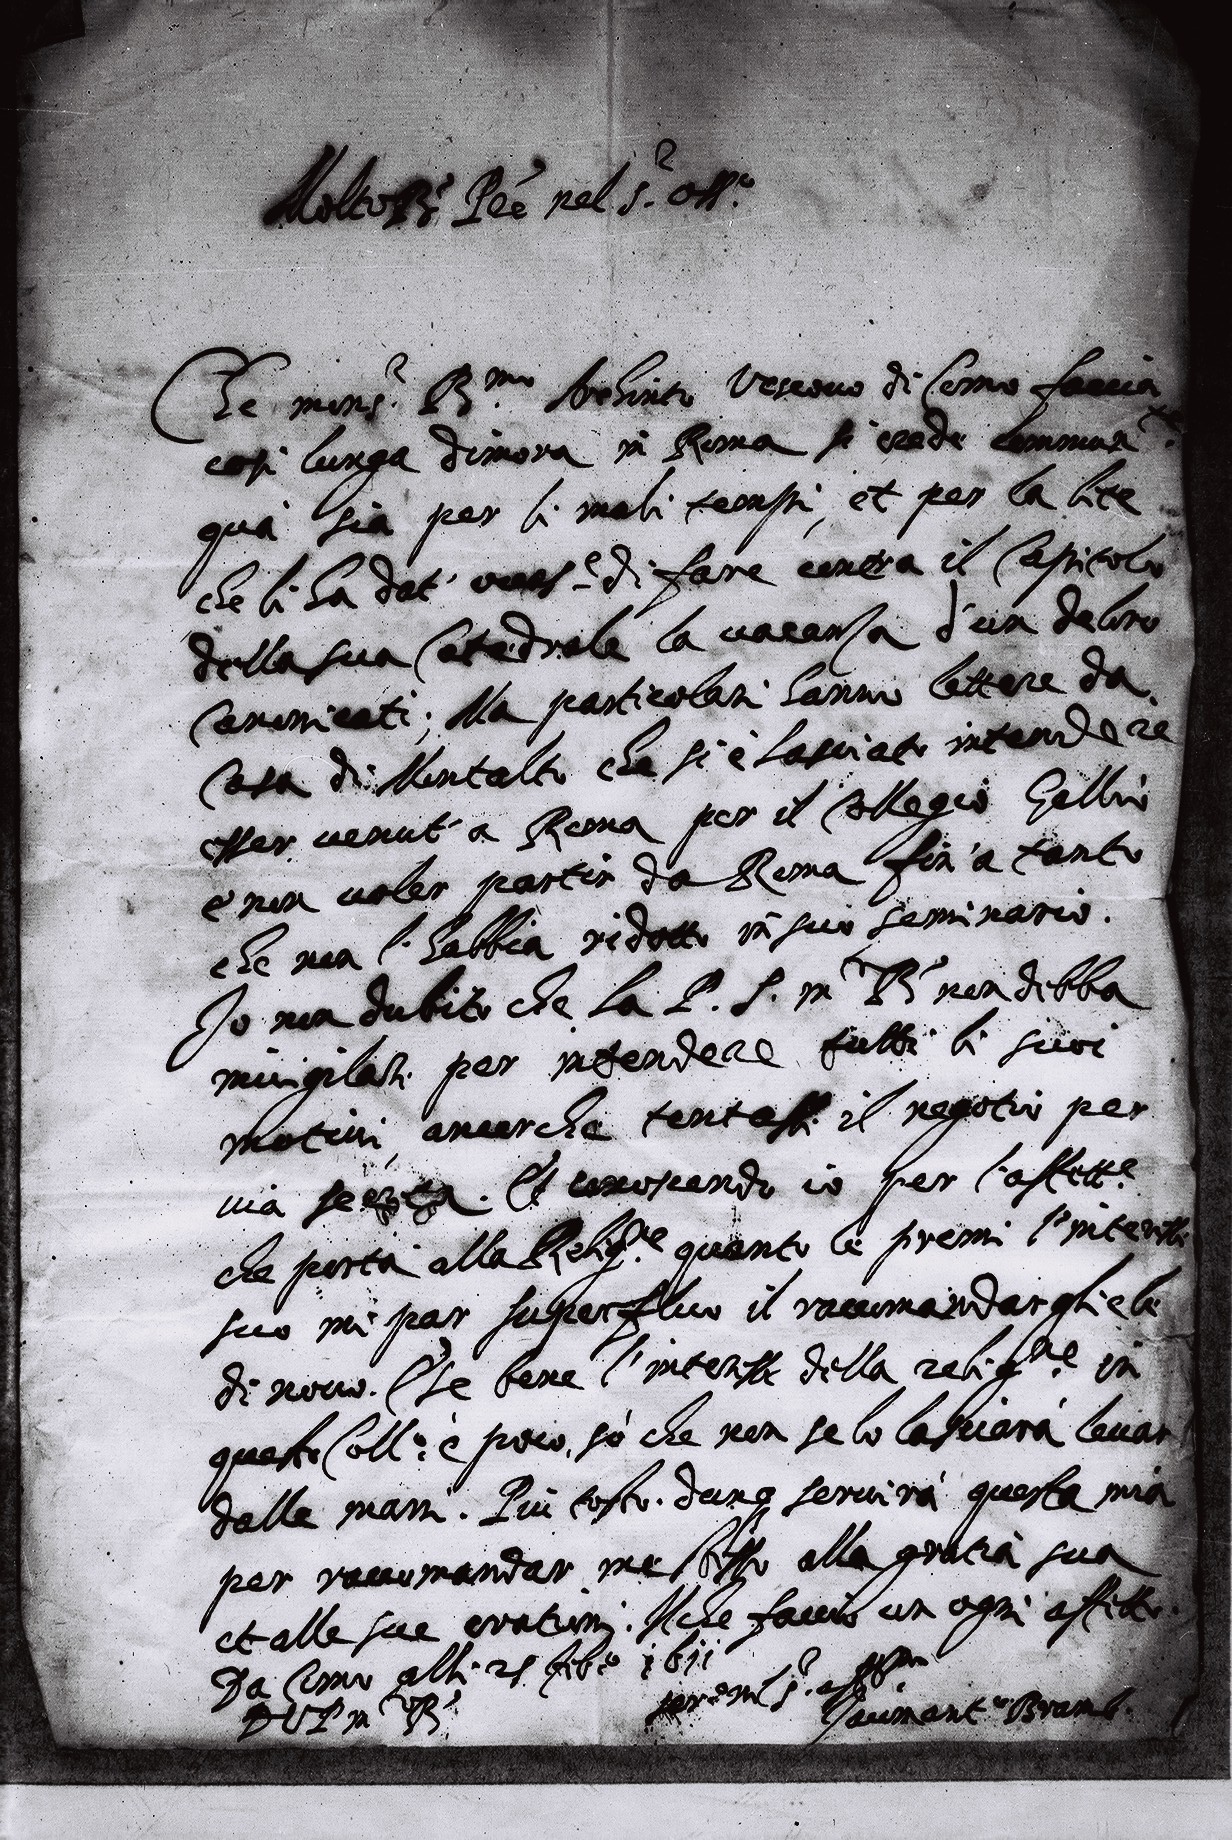 Molto R.do P.re nel S.r oss.mo
Che mons.r R.mo Archinto Vescovo di Como faccia
così lunga dimora in Roma si crede communem.te
quà sia per li mali tempi, et per la lite
che li ha dat' occas.e di fare contra il Capitolo
della sua Catedrale la vacanza d'un de loro
Canonicati; Ma particolari hanno lettere da
Casa di Montalto che si è lasciato intendere
esser venut' a Roma per il Collegio Gallio
e non voler partir da Roma fin' a tanto
che non l'habbia ridotto in suo seminario.
Io non dubito che la P. S. m R non debba
invigilar per intendere tutti li suoi
motivi, ancorche tentasse il negotio per
via secreta. Et conoscendo io per l'affett.
che porta alla Relig.ne quanto le premi l'interesse
suo mi par superfluo il raccomandarglielo
di novo. Che se bene l'interesse della relig.ne in
questo Coll.o è poco, sò che non se lo lasciarà levar
dalle mani. Più tosto dunq servirà questa mia
per raccomandar me stesso alla gratia sua
et alle sue orationi. Il che faccio con ogni affetto.
Da Como alli 25 feb.o 1611
D V P m R
ser. nel S.r aff.mo
Giaumant.o Bramb.